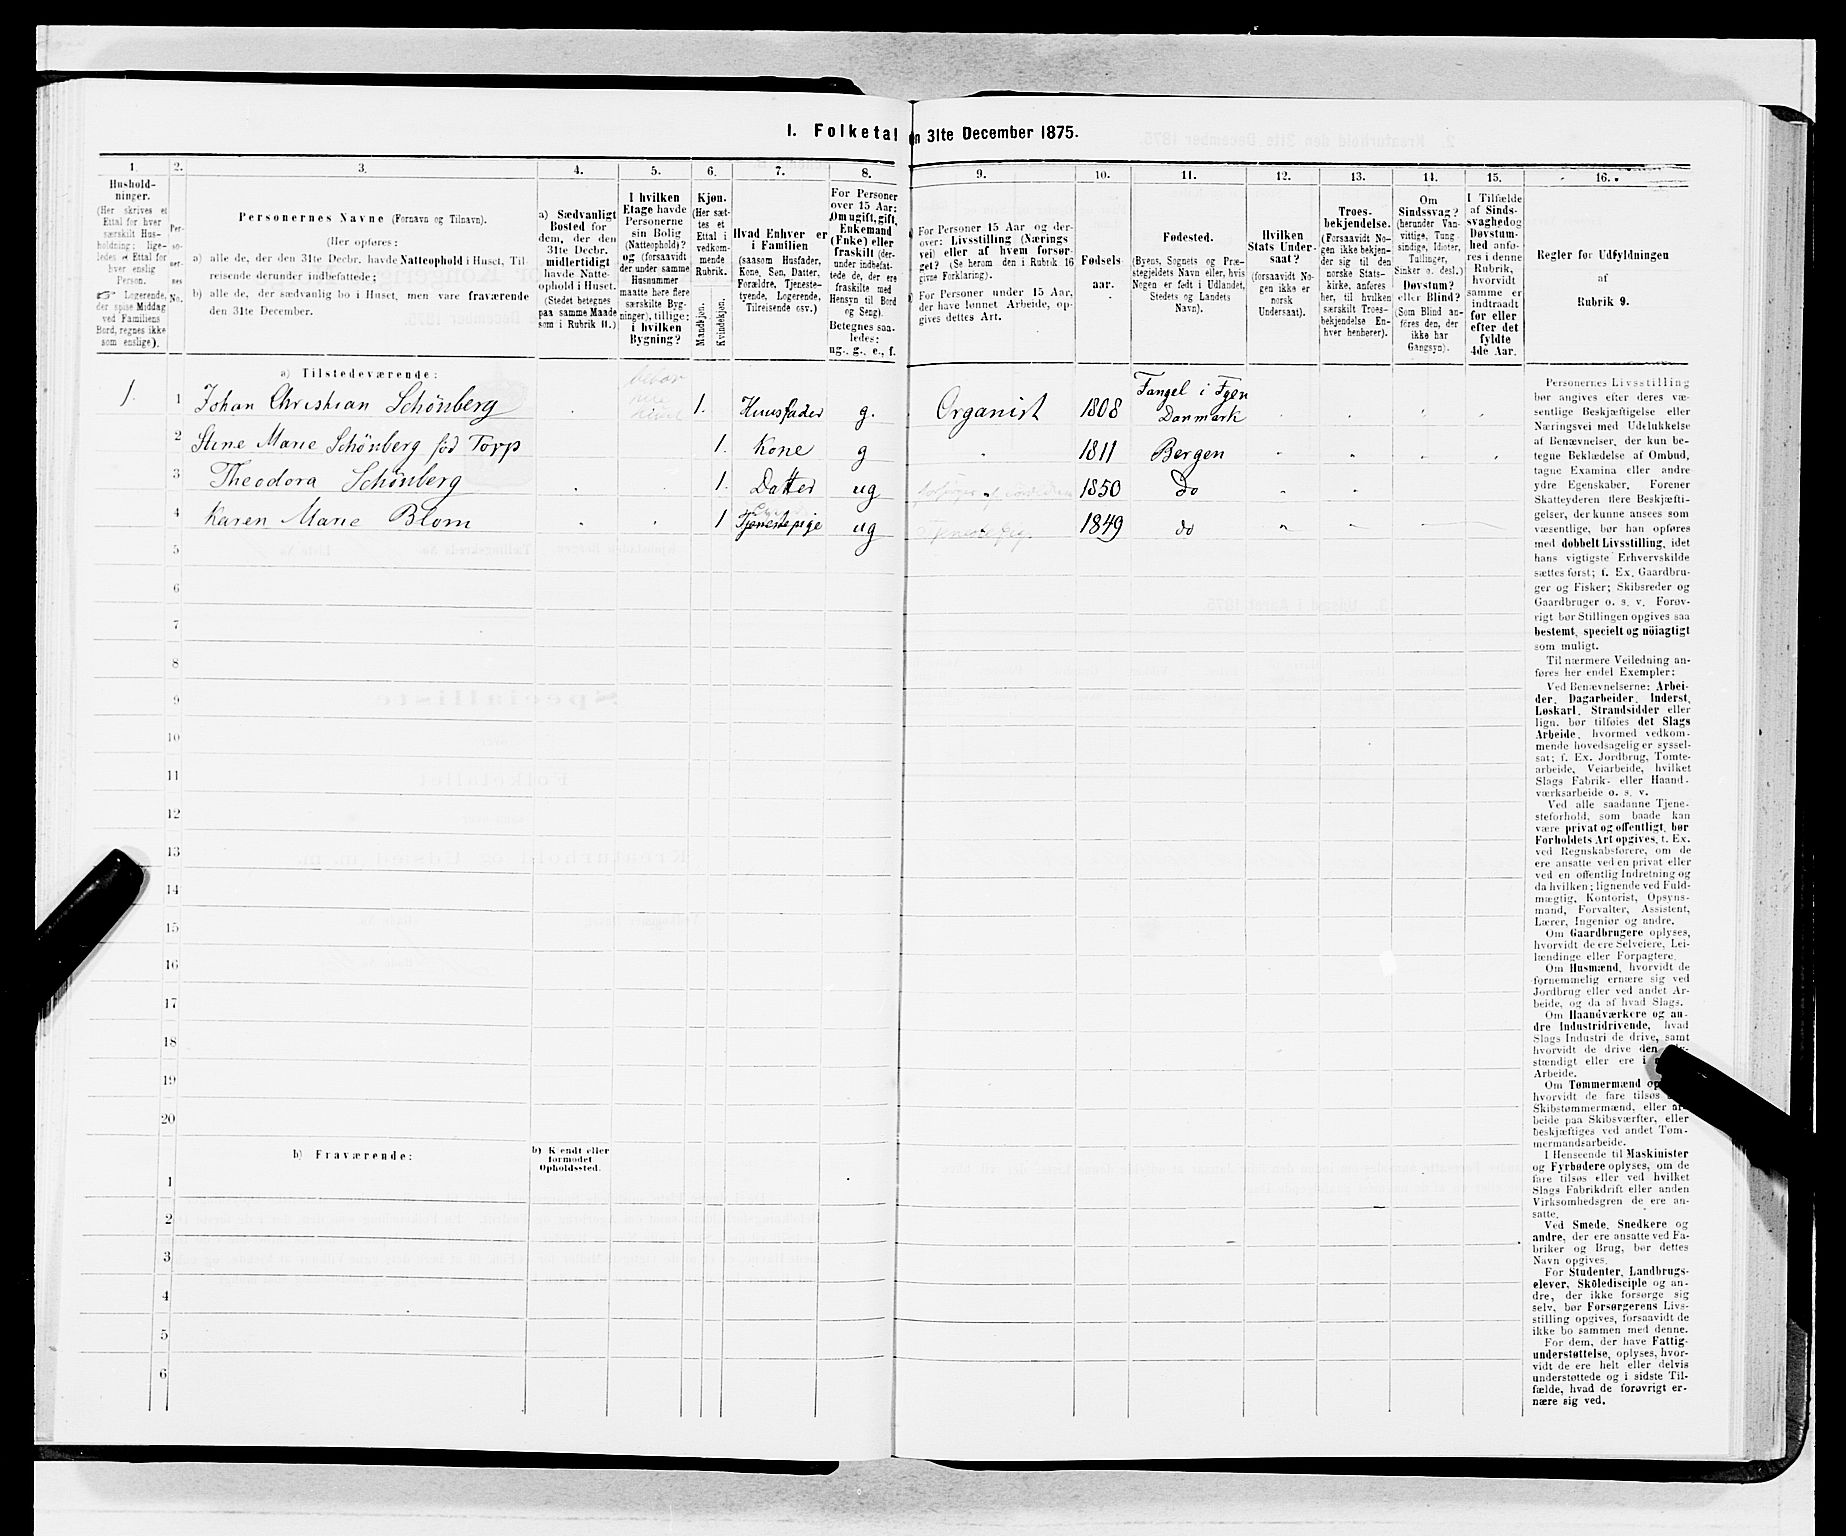 1. Folketal
n 31te December 1875.
1.
2.
3.
4.
5.
6.
7.
8.
9.
10.
11.
12.
13.
14.
15.
16.
Hushold-
ninger.
(Her skrives et
Ettal for hver
særskilt Hus-
holdning; lige-
ledes et Ettal for
hver enslig
Person.
☞ Logerende,
der spise Middag
ved Familiens
Bord, regnes ikke
som enslige).
Per-
so-
ner-
nes
No.
Personernes Navne (Fornavn og Tilnavn).
(Her opføres:
a) alle de, der den 31te Decbr. havde Natteophold i Huset, Til-
reisende derunder indbefattede;
b) alle de, der sædvanlig bo i Huset, men vare fraværende
den 31te December.
a) Sædvanligt
Bosted for
dem, der den
31te Decbr.
midlertidigt
havde Natte-
ophold i Huset.
(Stedet betegnes
paa samme Maade
som i Rubrik 11.)
I hvilken
Etage havde
Personerne
sin Bolig
(Natteophold)?
og (forsaavidt
der under samme
Husnummer
maatte høre flere
særskilte Byg-
ninger), tillige:
i hvilken
Bygning?
Kjøn.
(Her sæt-
tes et
Ettal i
vedkom-
mende
Rubrik.
Mandkjøn.
Kvindekjøn.
Hvad Enhver er
i Familien
(saasom Husfader,
Kone, Søn, Datter,
Forældre, Tjeneste-
tyende, Logerende,
Tilreisende osv.)
For Personer
over 15 Aar:
Om ugift, gift,
Enkemand
(Enke) eller
fraskilt (der-
under indbefat-
tede de, der ere
fraskilte med
Hensyn til Bord
og Seng).
Betegnes saa-
ledes:
ug., g., e., f.
For Personer 15 Aar og der-
over: Livsstilling (Nærings
vei) eller af hvem forsør-
get? (Se herom den i Rubrik 16
givne Forklaring).
For Personer under 15 Aar,
der have lønnet Arbeide, op-
gives dettes Art.
Fødsels
aar.
Fødested.
(Byens, Sognets og Præ-
stegjeldets Navn eller, hvis
Nogen er født i Udlandet,
Stedets og Landets
Navn).
Hvilken
Stats Under-
saat?
(forsaavidt No-
gen ikke er
norsk
Undersaat).
Troes-
bekjendelse.
(Forsaavidt No-
gen ikke bekjen-
der sig til den
norske Stats-
kirke, anføres
her, til hvilken
særskilt Troes-
bekjendelse En-
hver henhører).
Om
Sindssvag?
(herunder Van-
vittige, Tung-
sindige, Idioter,
Tullinger,
Sinker o. desl.)
Døvstum?
eller Blind?
(Som Blind an-
føres den, der
ikke har
Gangsyn).
I Tilfælde
af Sinds-
svaghed og
Døvstum-
hed anfø-
res i denne
Rubrik,
hvorvidt
samme er
indtraadt
før eller
efter det
fyldte
4de Aar.
Regler for Udfyldningen
af
Rubrik 9.
a) Tilstedeværende:
1. 1 Johan Christian Schönberg 1. Huusfader g. Organist 1808 Fangel i Fyen Danmark
2 Stine Marie Schönberg fød Torp 1. Kone g 1811 Bergen
3 Theodora Schönberg 1. Datter ug 1850 do
4 Karen Marie Blom 1 Tjenestepige ug 1849 do
5
6
7
8
9
10
11
12
13
14
15
16
17
18
19
20
b) Fraværende:
b) Kjendt eller
formodet
Opholdssted.
1
2
3
4
5
6
Personernes Livsstilling
bør angives efter deres væ-
sentlige Beskjæftigelse eller
Næringsvei med Udelukkelse
af Benævnelser, der kun be-
tegne Beklædelse af Ombud,
tagne Examina eller andre
ydre Egenskaber. Forener
Skatteyderen flere Beskjæfti-
gelser, der kunne ansees som
væsentlige, bør han opføres
med dobbelt Livsstilling, idet
hans vigtigste Erhvervskilde
sættes først; f. Ex. Gaardbru-
ger og Fisker; Skibsreder og
Gaardbruger o. s. v. Forøv-
rigt bør Stillingen opgives saa
bestemt, specielt og nöiagtigt
som muligt.
Til nærmere Veiledning an-
føres her endel Exempler:
Ved Benævnelserne: Arbei-
der, Dagarbeider, Inderst,
Løskarl, Strandsidder eller
lign. bør tilføies det Slags
Arbeide, hvormed vedkom-
mende hovedsagelig er syssel-
sat; f. Ex. Jordbrug, Tomte-
arbeide, Veiarbeide, hvilket
Slags Fabrik- eller Haand-
værksarbeide o. s. v.
Ved alle saadanne Tjene-
steforhold, som baade kan
være privat og offentligt, bør
Forholdets Art opgives, f. Ex.
ved Regnskabsførere, om de
ere ansatte ved en privat eller
ved en offentlig Indretning og
da hvilken; lignende ved Fuld-
mægtig, Kontorist, Opsyns-
mand, Forvalter, Assistent,
Lærer, Ingeniør og andre.
Om Gaardbrugere oplyses,
hvorvidt de ere Selveiere, Lei-
lændinge eller Forpagtere.
Om Husmænd, hvorvidt de
fornemmelig ernære sig ved
Jordbrug eller ved andet Ar-
beide, og da af hvad Slags.
Om Haandværkere og an-
dre Industridrivende, hvad
Slags Industri de drive, samt
hvorvidt de drive den
stændigt eller ere i
Arbeide.
Om Tømmermænd op
hvorvidt de fare tilsøs
Skibstømmermænd, eller ar-
beide paa Skibsværfter, eller
beskjæftiges ved andet Tøm-
mermandsarbeide.
I Henseende til Maskinister
og Fyrbødere oplyses, om de
fare tilsøs eller ved hvilket
Slags Fabrikdrift eller anden
Virksomhedsgren de ere an-
satte.
Ved Smede, Snedkere og
andre, der ere ansatte ved Fa-
briker og Brug, bør dettes
Navn opgives.
For Studenter, Landbrugs-
elever, Skoledisciple og an-
dre, der ikke forsørge sig
selv, bør Forsørgerens Livs-
stilling opgives, forsaavidt de
ikke bo sammen med denne.
For dem, der have Fattig-
understøttelse, oplyses, hvor-
vidt de ere helt eller delvis
understøttede og i sidste Til-
fælde, hvad de forøvrigt er-
nære sig ved.